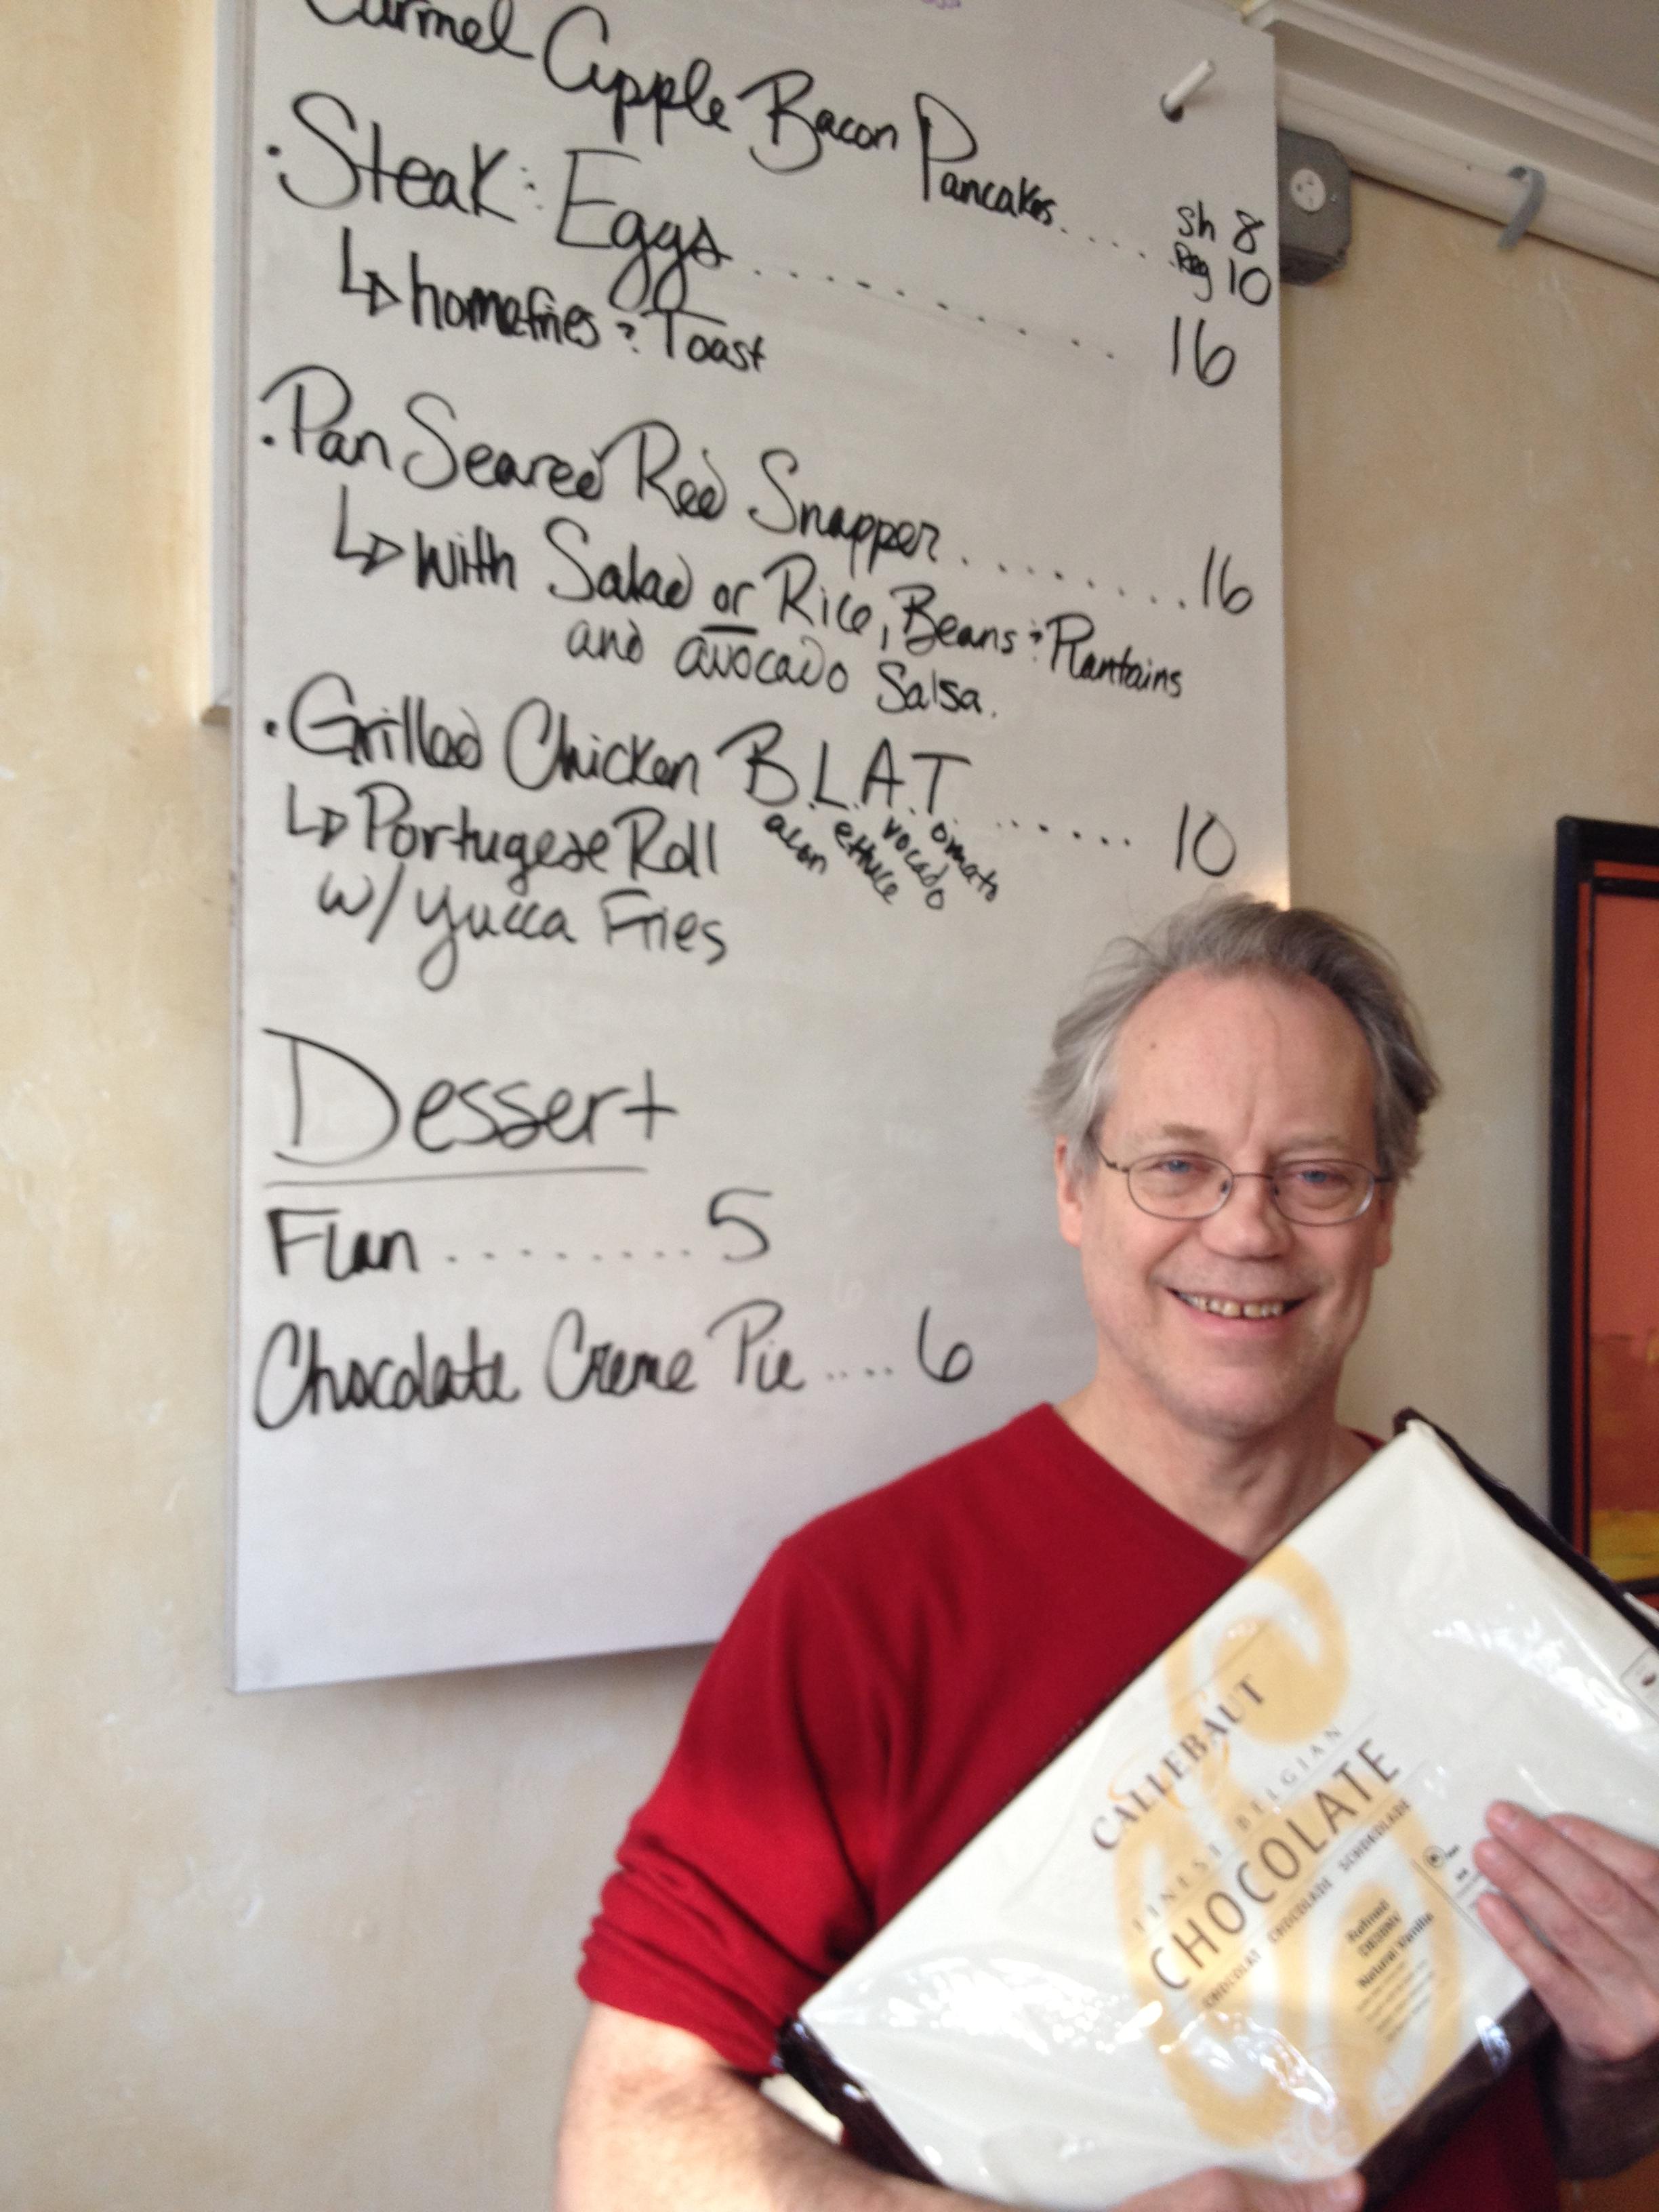 Carmel Apple Bacon Pancakes..... sh 8
Reg 10
• Steak & Eggs............. 16
↳ homefries & Toast
• Pan Seared Red Snapper......... 16
↳ with Salad or Rice, Beans & Plantains
and avocado Salsa.
• Grilled Chicken B.L.A.T......... 10
acon ettuce vocado omato
↳ Portugese Roll
w/ yucca Fries
Dessert
Flan ......... 5
Chocolate Creme Pie .... 6
CALLEBAUT
FINEST BELGIAN
CHOCOLATE
CHOCOLAT CHOCOLADE SCHOKOLADE
Natural Vanilla